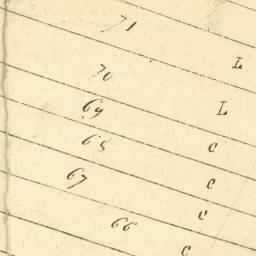 71
L
70
L
69
C
68
C
67
C
66
C